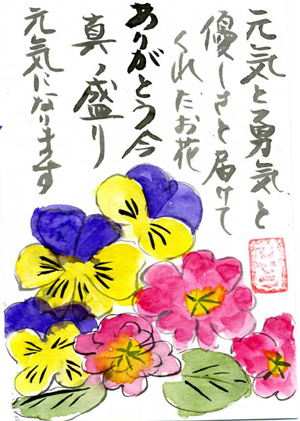 元気と勇気と
優しさと届けて
くれたお花
ありがとう今
真ノ盛り
元気になります